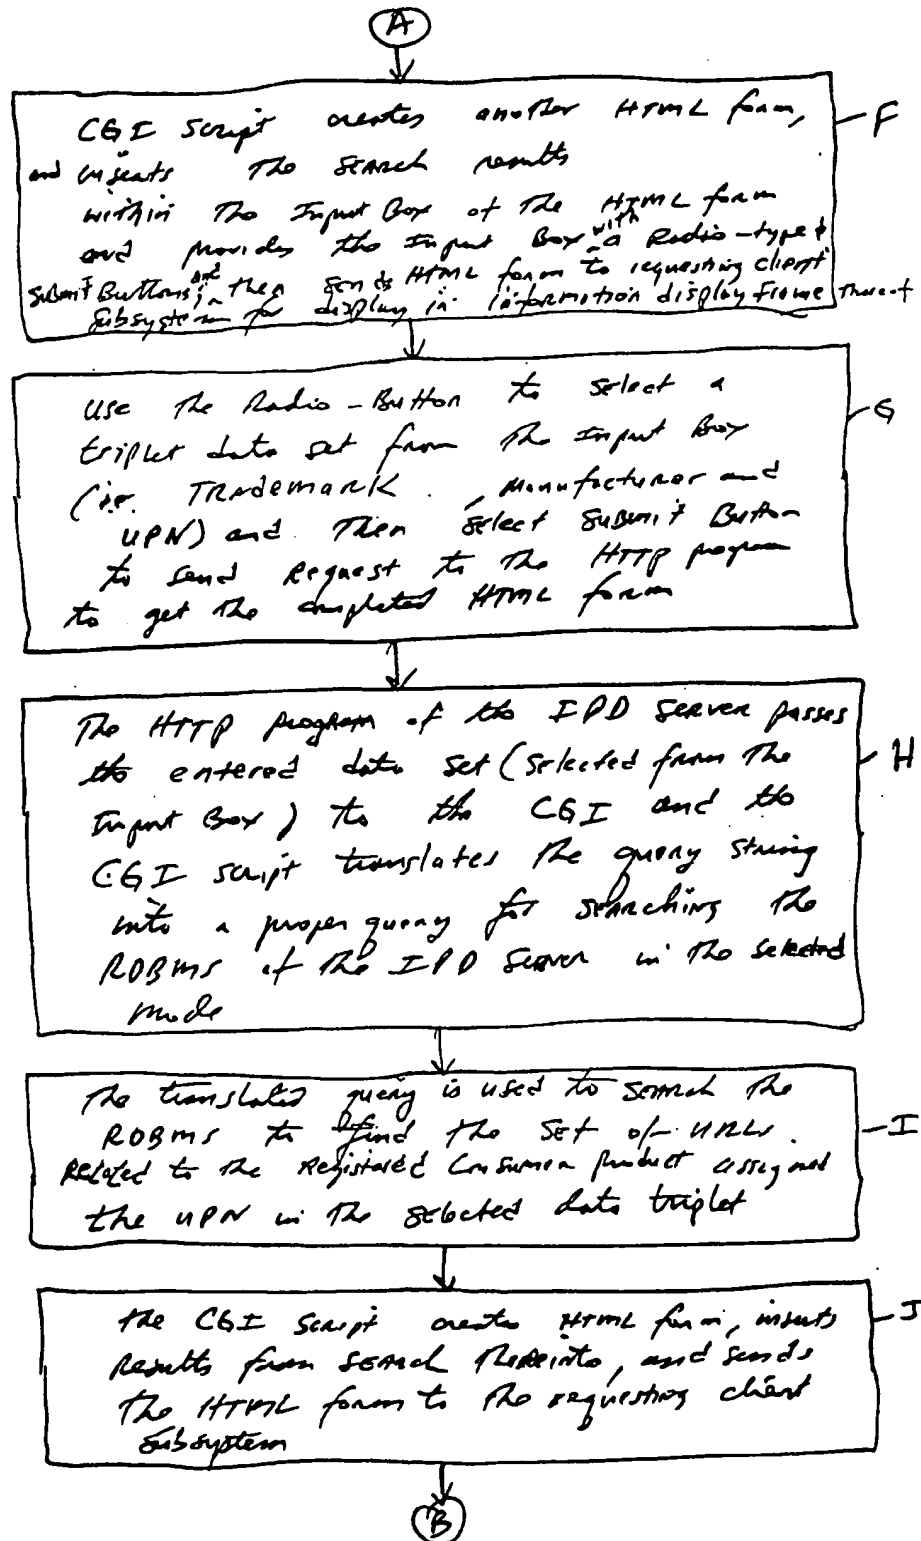 A
CGI Script creates another HTML form, F
and inserts The SEARCH results
within The Input Box of The HTML form
and provides the Input Box with a Radio-type &
Submit Buttons, and then sends HTML form to requesting client
subsystem for display in information display frame thereof
use The Radio-Button to select a G
triplet data set from The Input Box
(ie. TRademark, Manufacturer and
UPN) and Then select submit Button
to send Request to The HTTP program
to get the completed HTML form
The HTTP program of the IPD Server passes
the entered data set (selected from The H
Input Box) to the CGI and the
CGI script translates The query string
into a proper query for SEARching The
RDBMS of The IPD Server in The selected
mode
The translated query is used to SEARCH The
RDBMS to find the Set of URLs I
Related to The Registered Consumer product assigned
the UPN in The selected data triplet
the CGI Script creates HTML form, inserts J
Results from SEARCH Thereinto, and sends
The HTML form to The requesting client
subsystem
B